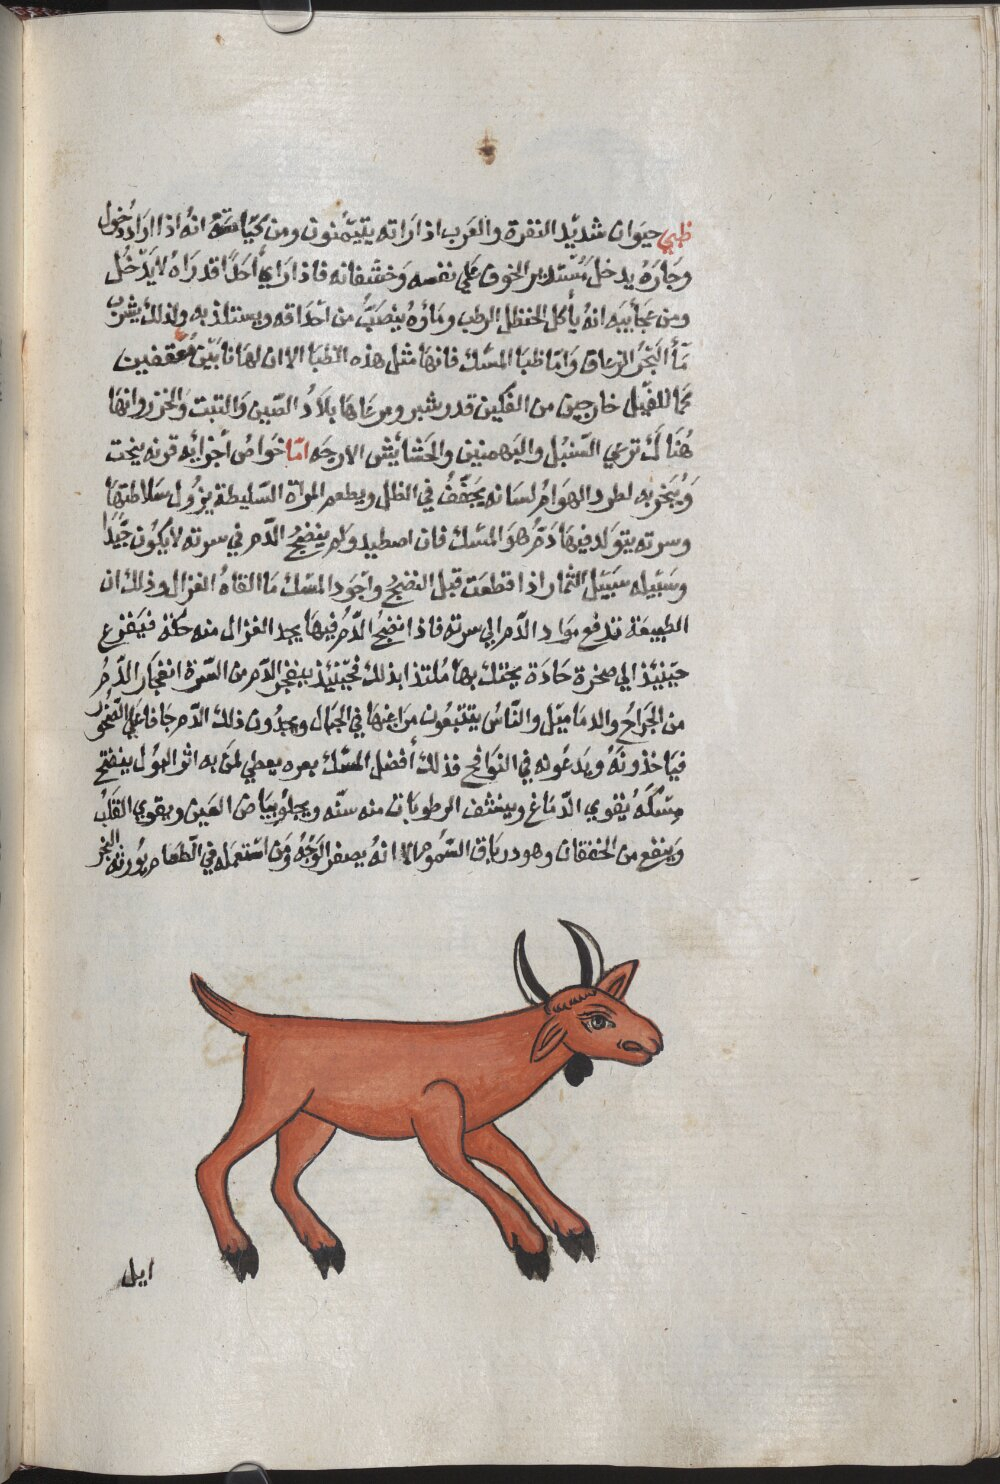 ظبي حيوان شديد النفرة والعرب اذا راته يتيمنون ومن كياسته انه اذا اراد دخول
وجاره يدخل مستدبر الخوف على نفسه وخشفانه فاذا راي أحدًا قد راه لا يدخل
ومن عجأيبه انه يأكل الحنظل الرطب وماؤه ينصب من احداقه ويستلذ به ولذلك يشرب
مأ البحر الزعاق واما ظبا المسك فانها مثل هذه الظبا الا ان لها نابين معقفين
كما للفيل خارجين من الفكين قدر شبر ومرعاها بلاد الصين والتبت وانها
هناك ترعي السنبل والبهمنين والحشايش الارجه اما خواص أجزأيه قرنه ينحت
ويبخر به لطرد الهوام لسانه يجفف في الظل ويطعم المراة السليطة يزول سلاطتها
وسرته يتولد فيها دم هو المسك فان اصطيد ولم ينضج الدم في سرته لا يكون جيدا
وسبيله سبيل الثمار اذا قطعت قبل النضج واجود المسك ما القاه الغزال وذلك ان
الطبيعة تدفع مواد الدم الي سرته فاذا انضج الدم فيها يجد الغزال منه حكة فيفزع
حينئذ الي صخرة حادة يحتك بها ملتذا بذلك فحينئذ ينفجر الدم من السرة انفجار الدم
من الجراح والدماميل والناس يتتبعون مراعيها في الجبال ويجدون ذلك الدم جافا علي الصخور
فياخذونه ويدعونه في النوافج فذلك أفضل المسك بعره يعطي لمن به اثر البول ينفتح
مسكه يقوي الدماغ وينشف الرطوبات منه سنه ويجلو بياض العين ويقوي القلب
وينفع من الخفقان وهو درياق السموم الا انه يصفر الوجه ومن استعمله في الطعام يورثه البخر
ايل